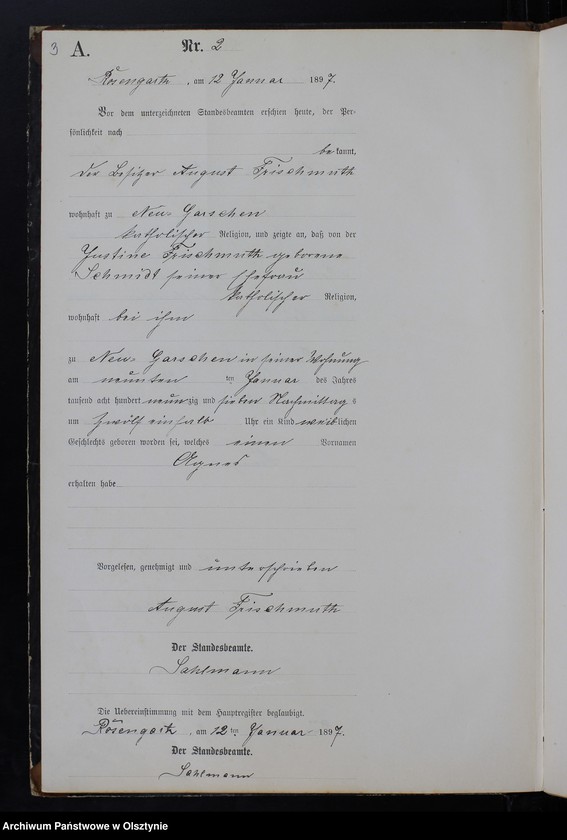 3 A. Nr. 2
Rosengarth, am 12 Januar 1897.
Vor dem unterzeichneten Standesbeamten erschien heute, der Per-
sönlichkeit nach
bekannt,
der Besitzer August Frischmuth
wohnhaft zu Neu-Garschen
katholischer Religion, und zeigte an, daß von der
Justine Frischmuth geborene
Schmidt seiner Ehefrau
katholischer Religion,
wohnhaft bei ihm
zu Neu-Garschen in seiner Wohnung
am neunten ten Januar des Jahres
tausend acht hundert neunzig und sieben Nachmittags
um zwölf einhalb Uhr ein Kind weiblichen
Geschlechts geboren worden sei, welches einen Vornamen
Agnes
erhalten habe
Vorgelesen, genehmigt und unterschrieben
August Frischmuth
Der Standesbeamte.
Sahlmann
Die Uebereinstimmung mit dem Hauptregister beglaubigt.
Rosengarth, am 12ten Januar 1897.
Der Standesbeamte.
Sahlmann
Archiwum Państwowe w Olsztynie